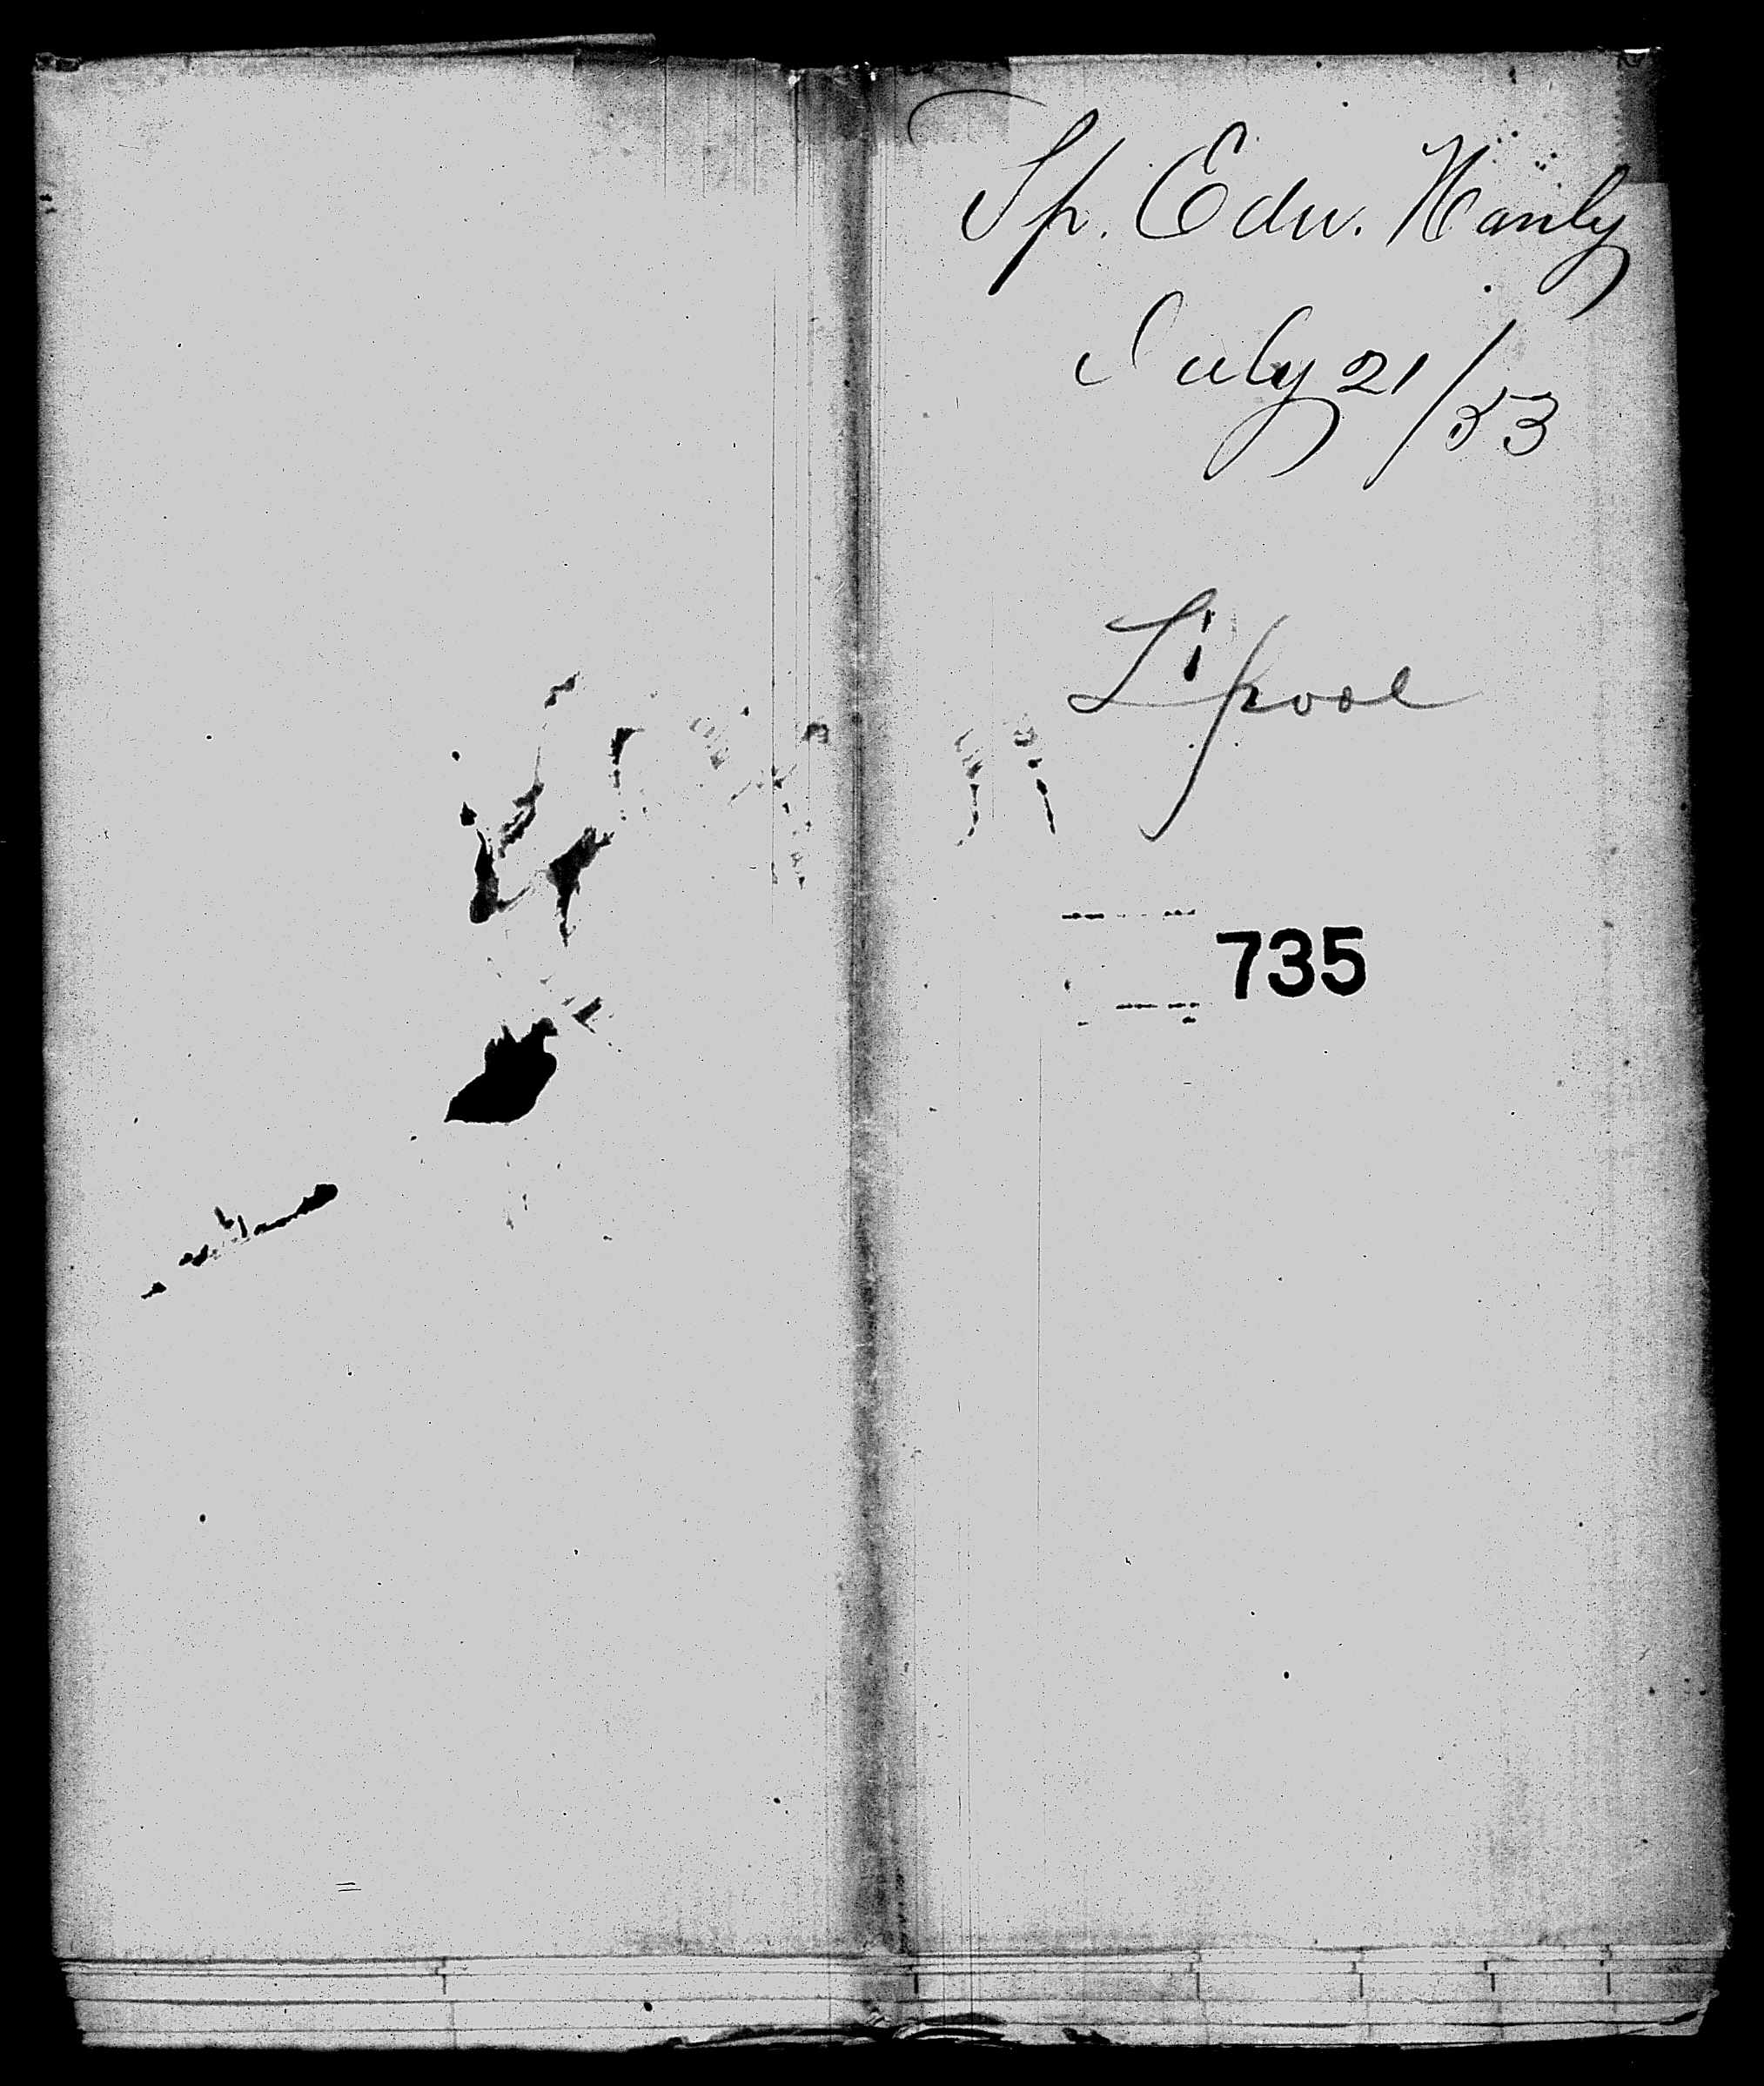 Sp. Edw. Hanly
July 21/53
L'pool
735